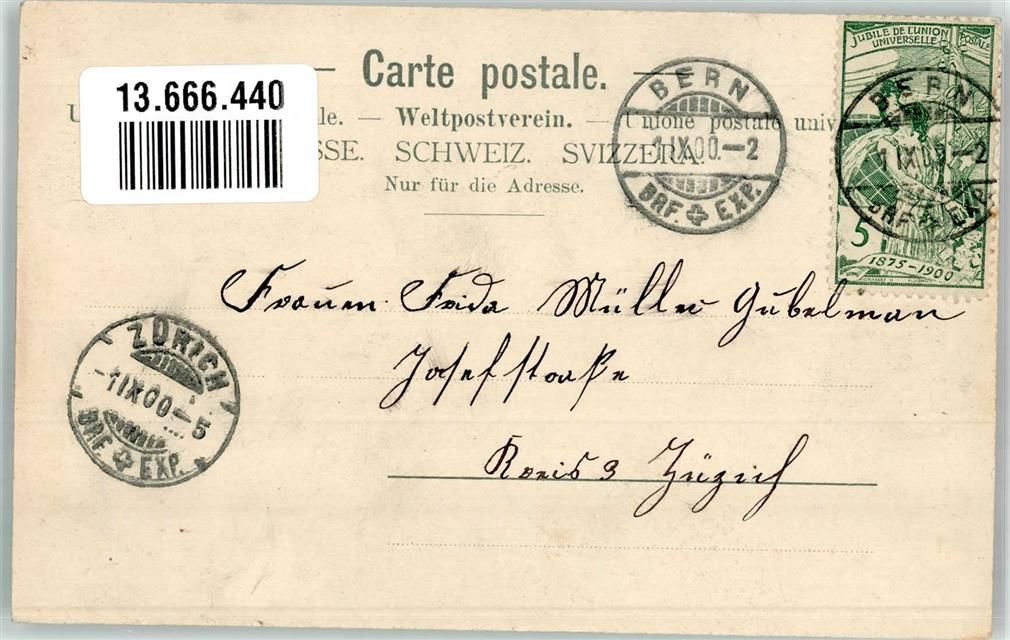 13.666.440
Carte postale.
le. — Weltpostverein. — Unione postale univ
SSE. SCHWEIZ. SVIZZERA.
Nur für die Adresse.
BERN
1 IX 00.–2
BRF. EXP.
JUBILÉ DE L'UNION POSTALE
UNIVERSELLE
BERN
1 IX 00.–2
BRF. EXP.
5
1875–1900
Frauen Frida Müller Gubelman
Josefstraße
Kreis 3 Zürich
ZÜRICH
–1 IX 00–5
BRF. EXP.